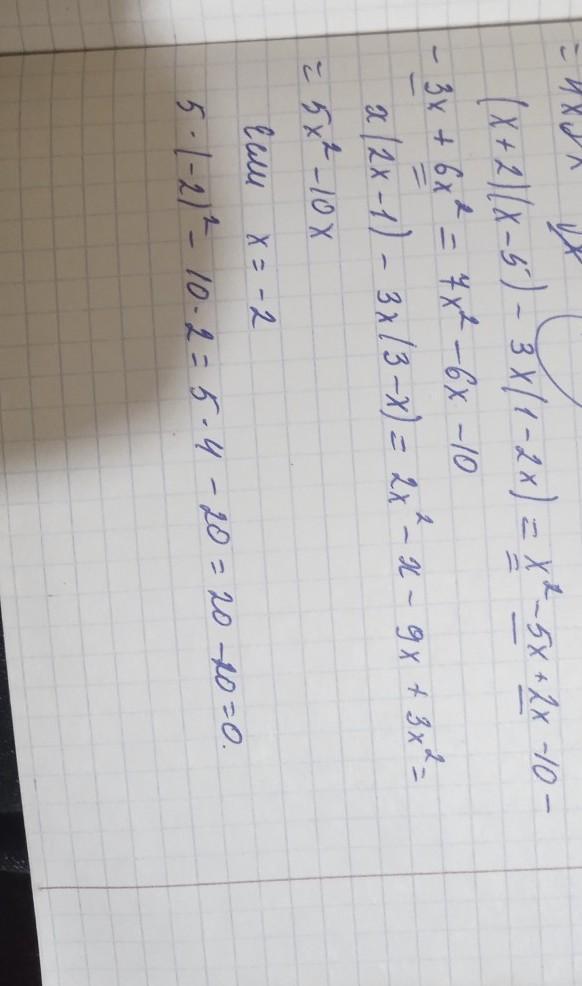 (x+2)(x-5) - 3x(1-2x) = x² - 5x + 2x - 10 -
- 3x + 6x² = 7x² - 6x - 10
x(2x-1) - 3x(3-x) = 2x² - x - 9x + 3x² =
= 5x² - 10x
Если x = -2
5·(-2)² - 10·2 = 5·4 - 20 = 20 - 20 = 0.